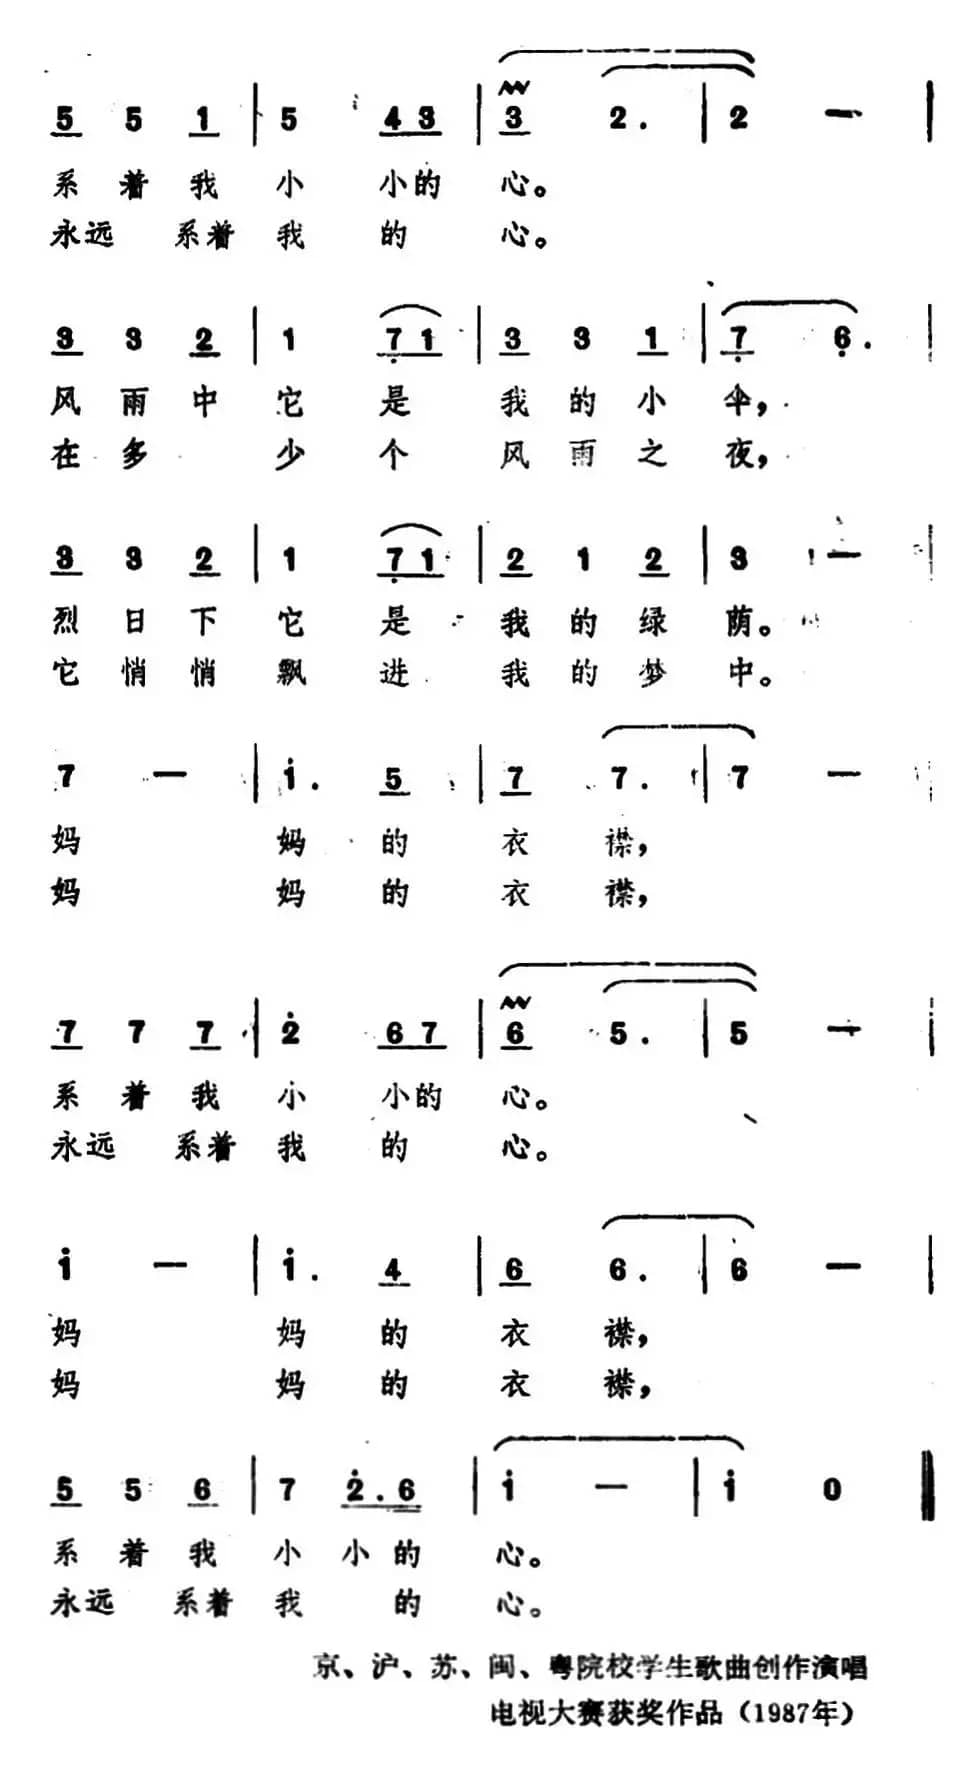 5 5 1 | 5 4 3 | 3 2. | 2 — |
系着我小 小的 心。
永远 系着我 的 心。
3 3 2 | 1 7 1 | 3 3 1 | 7 6. |
风雨中它 是 我的小伞，
在多 少 个 风雨之夜，
3 3 2 | 1 7 1 | 2 1 2 | 3 — |
烈日下它 是 我的绿荫。
它悄悄飘 进 我的梦中。
7 — | i. 5 | 7 7. | 7 — |
妈 妈 的 衣 襟，
妈 妈 的 衣 襟，
7 7 7 | 2 6 7 | 6 5. | 5 — |
系着我小 小的 心。
永远 系着我 的 心。
i — | i. 4 | 6 6. | 6 — |
妈 妈 的 衣 襟，
妈 妈 的 衣 襟，
5 5 6 | 7 2. 6 | i — | i 0 ‖
系着我小 小的 心。
永远 系着我 的 心。
京、沪、苏、闽、粤院校学生歌曲创作演唱
电视大赛获奖作品（1987年）